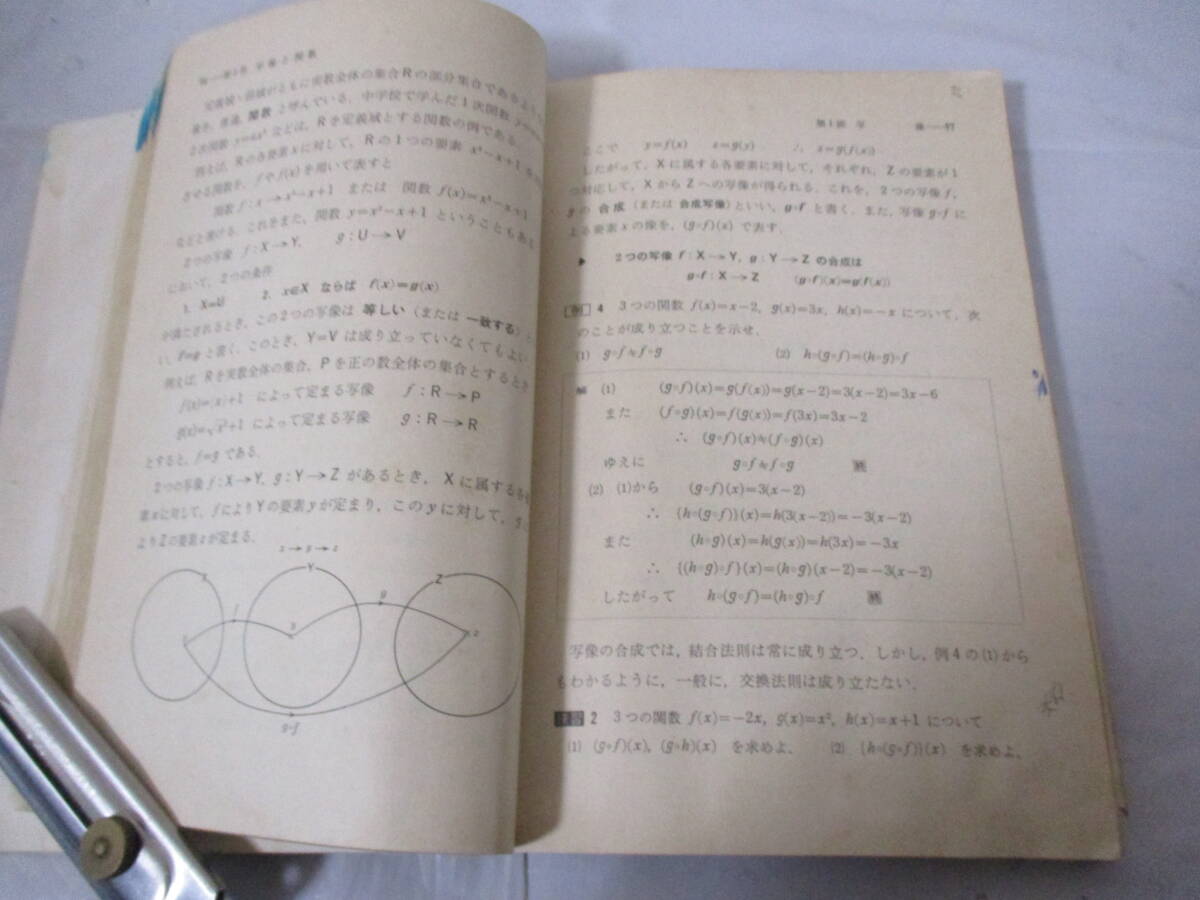 定義域・値域がともに実数全体の集合Rの部分集合である
普通，関数 と呼んでいる．中学校で学んだ1次関数
2次関数 などは，Rを定義域とする関数の例である．
例えば，Rの各要素xに対して，Rの1つの要素 x²−x+1
させる関数を，fやf(x)を用いて表すと
関数 f：x→x²−x+1 または 関数 f(x)=x²−x+1
などと書ける．これをまた，関数 y=x²−x+1 ということもある
2つの写像 f：X→Y, g：U→V
において，2つの条件
1. X=U 2. x∈X ならば f(x)=g(x)
が満たされるとき，この2つの写像は 等しい（または 一致する）と
い，f=g と書く．このとき，Y=Vは成り立っていなくてもよい
例えば，Rを実数全体の集合，Pを正の数全体の集合とするとき
f(x)=|x|+1 によって定まる写像 f：R→P
g(x)=√x²+1 によって定まる写像 g：R→R
とすると，f=g である．
2つの写像 f：X→Y, g：Y→Z があるとき，Xに属する各
素xに対して，fによりYの要素yが定まり，このyに対して，g
よりZの要素zが定まる．
x→y→z
X Y Z
f g
x y z
g∘f
第1節 写 像
ここで y=f(x) z=g(y) ∴ z=g(f(x))
したがって，Xに属する各要素に対して，それぞれ，Zの要素が1
つ対応して，XからZへの写像が得られる．これを，2つの写像 f,
g の 合成（または 合成写像）といい，g∘f と書く．また，写像 g∘f に
よる要素xの像を，(g∘f)(x) で表す．
▶ 2つの写像 f：X→Y, g：Y→Z の合成は
g∘f：X→Z (g∘f)(x)=g(f(x))
例 4 3つの関数 f(x)=x−2, g(x)=3x, h(x)=−x について，次
のことが成り立つことを示せ．
(1) g∘f≠f∘g (2) h∘(g∘f)=(h∘g)∘f
解 (1) (g∘f)(x)=g(f(x))=g(x−2)=3(x−2)=3x−6
また (f∘g)(x)=f(g(x))=f(3x)=3x−2
∴ (g∘f)(x)≠(f∘g)(x)
ゆえに g∘f≠f∘g 終
(2) (1)から (g∘f)(x)=3(x−2)
∴ {h∘(g∘f)}(x)=h(3(x−2))=−3(x−2)
また (h∘g)(x)=h(g(x))=h(3x)=−3x
∴ {(h∘g)∘f}(x)=(h∘g)(x−2)=−3(x−2)
したがって h∘(g∘f)=(h∘g)∘f 終
写像の合成では，結合法則は常に成り立つ．しかし，例4の(1)から
もわかるように，一般に，交換法則は成り立たない．
2 3つの関数 f(x)=−2x, g(x)=x², h(x)=x+1 について
(1) (g∘f)(x), (g∘h)(x) を求めよ． (2) {h∘(g∘f)}(x) を求めよ．